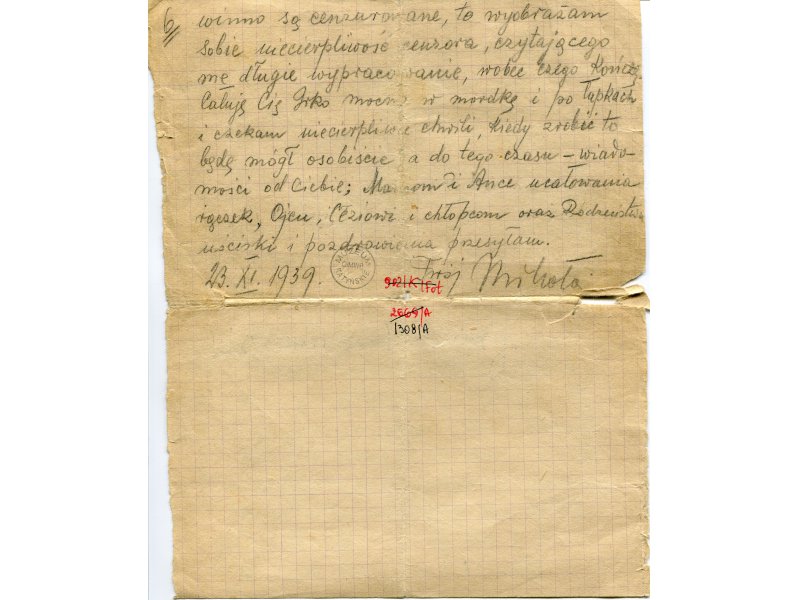 6/
winno są cenzurowane, to wyobrażam
sobie niecierpliwość cenzora, czytającego
me długie wypracowanie, wobec czego kończę.
Całuję Cię Irko mocno w mordkę i po łapkach
i czekam niecierpliwie chwili, kiedy zrobić to
będę mógł osobiście a do tego czasu – wiado-
mości od Ciebie; i Ance ucałowania
rączek, Ojcu, Cziowi i chłopcom oraz Rodzeństwu
uściski i pozdrowienia przesyłam.
23. XI. 1939. Twój Mikołaj
MUZEUM KATYŃSKIE
912/K/Fot
2669/A
1308/A